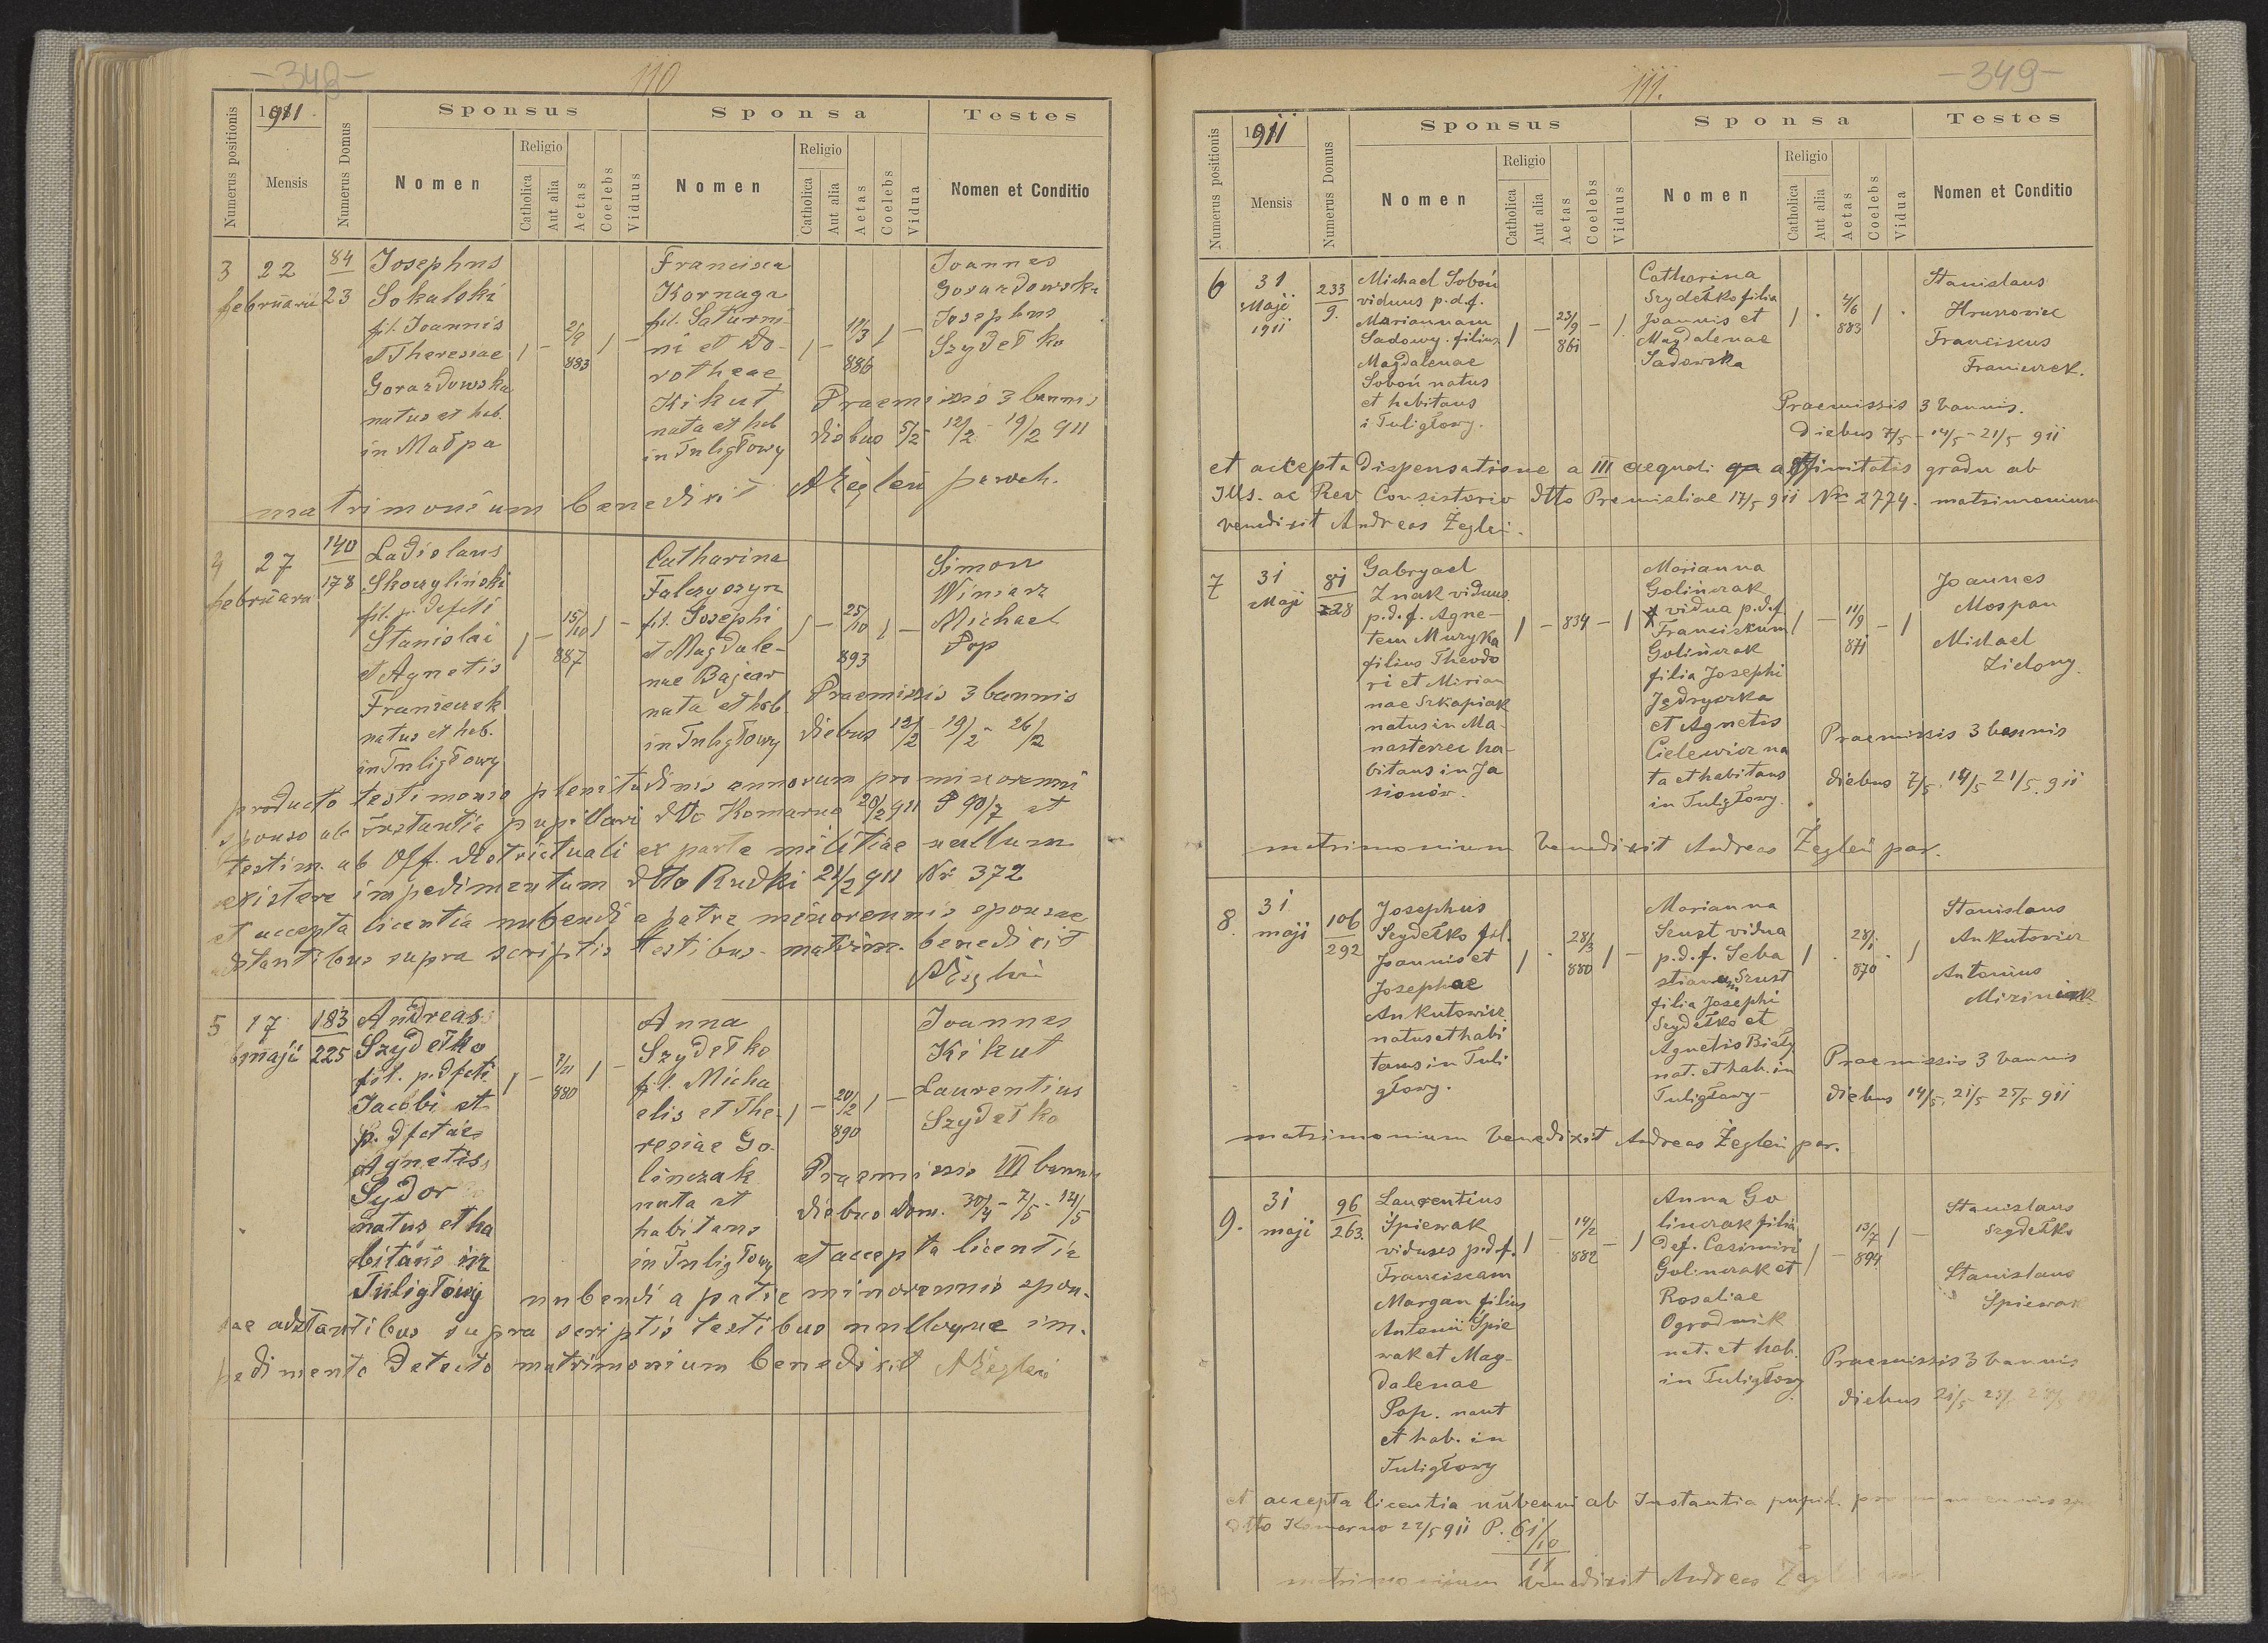 -348-
110
Numerus positionis
1911
Mensis
Numerus Domus
Sponsus
Nomen
Religio
Catholica
Aut alia
Aetas
Coelebs
Viduus
Sponsa
Nomen
Religio
Catholica
Aut alia
Aetas
Coelebs
Vidua
Testes
Nomen et Conditio
3
22
februarii
84
23
Josephus
Sokalski
fil. Joannis
et Theresiae
Gorazdowska
natus et hab.
in Małpa
1 - 2/9 883 1 -
Francisca
Kornaga
fil. Saturni-
ni et Do-
rotheae
Kikut
nata et hab
in Tuligłowy
1 - 19/3 886 1 -
Joannes
Gorazdowski
Josephus
Szydełko
Praemissis 3 bannis
diebus 5/2 12/2 - 19/2 911
matrimonium benedixit AŻegleń paroch.
4
27
februarii
140
178
Ladislaus
Skoczyliński
fil. p. defcti
Stanislai
et Agnetis
Franiczek
natus et hab.
in Tuligłowy
1 - 15/10 887 1 -
Catharina
Falczyszyn
fil. Josephi
et Magdale-
nae Bajcar
nata et hab.
in Tuligłowy
1 - 25/10 893 1 -
Simon
Winiarz
Michael
Pop
Praemissis 3 bannis
diebus 12/2 - 19/2 - 26/2
producto testimonio plenitudinis annorum pro minorenni
sponso ab instantia pupillari dtto Komarno 20/2 911 P 90/7 et
testim. ab Off. districtuali ex parte militiae nullum
existere impedimentum dtto Rudki 21/2 911 Nr 372
et accepta licentia nubendi a patre minorennis sponsae
adstantibus supra scriptis testibus matrim. benedixit
AŻegleń
5
17
maji
183
225
Andreas
Szydełko
fil. p. dfcti
Jacobi et
p. dfctae
Agnetis
Sydor
natus et ha
bitans in
Tuligłowy
1 - 880 1 -
Anna
Szydełko
fil. Micha
elis et The-
resiae Go-
linczak
nata et
habitans
in Tuligłowy
1 - 20/2 890 1 -
Joannes
Kikut
Laurentius
Szydełko
Praemissis III bannis
diebus dom. 30/4 - 7/5 - 14/5
et accepta licentia
nubendi a patre minorennis spon-
sae adstantibus supra scriptis testibus nulloque im-
pedimento detecto matrimonium benedixit AŻegleń
111.
-349-
Numerus positionis
1911
Mensis
Numerus Domus
Sponsus
Nomen
Religio
Catholica
Aut alia
Aetas
Coelebs
Viduus
Sponsa
Nomen
Religio
Catholica
Aut alia
Aetas
Coelebs
Vidua
Testes
Nomen et Conditio
6
31
Maji
1911
233
9.
Michael Soboń
viduus p.d.f.
Mariannam
Sadowy filius
Magdalenae
Soboń natus
et habitans
i Tuligłowy.
1 - 23/9 861 - 1.
Catharina
Szydełko filia
Joannis et
Magdalenae
Sadowska
1 . 4/6 883 1 .
Stanislaus
Franciscus
Franiczek.
Praemissis 3 bannis.
Diebus 7/5 - 14/5 - 21/5 911
et accepta dispensatione a III aequali affinitatis gradu ab
Ills. ac Rev Consistorio dtto Premisliae 17/5 911 Nr 2774. matrimonium
benedixit Andreas Żegleń.
7
31
Maji
81
228
Gabryael
Znak viduus
p.d.f. Agne-
tem Muzyka
filius Theodo
ri et Mirian
nae Szkapiak
natus in Ma-
nasterzec ha-
bitans in Ja
sionów.
1 - 834 - 1
Marianna
Golińczak
vidua p.d.f.
Franciszkum
Golińczak
filia Josephi
Jędryczka
et Agnetis
Cielewicz na
ta et habitans
in Tuligłowy.
1 - 11/9 871 - 1
Joannes
Mospan
Michael
Zielony.
Praemissis 3 bannis
diebus 7/5. 14/5 21/5. 911
matrimonium benedixit Andreas Żegleń par.
8.
31
maji
106
292
Josephus
Szydełko fil.
Joannis et
Josephae
Ankutowicz
natus et habi
tans in Tuli
głowy.
1 . 28/3 880 1 -
Marianna
Szust vidua
p.d.f. Seba
stianum Szust
filia Josephi
Szydełko et
Agnetis Biały
nat. et hab. in
Tuligłowy-
1 . 28/1 870 . 1
Stanislaus
Ankutowicz
Antonius
Praemissis 3 bannis
diebus 14/5. 21/5 25/5 911
matrimonium benedixit Andreas Żegleń par.
9.
31
maji
96
263.
Laurentius
Śpiewak
viduus p.d.f.
Franciscam
Margan filius
Antonii Śpie
wak et Mag-
dalenae
Pop. nat
et hab. in
Tuligłowy
1 - 14/2 882 - 1
Anna Go
linczak filia
def. Casimiri
Golinczak et
Rosaliae
Ogrodnik
nat. et hab.
in Tuligłowy
1 - 13/7 894 1 -
Stanislaus
Szydełko
Stanislaus
Śpiewak
Praemissis 3 bannis
diebus 21/5 - 25/5 28/5
et accepta licentia nubenni ab Instantia pupil.
dtto Komarno 22/5 911 P. 61/10
11
matrimonium benedixit Andreas